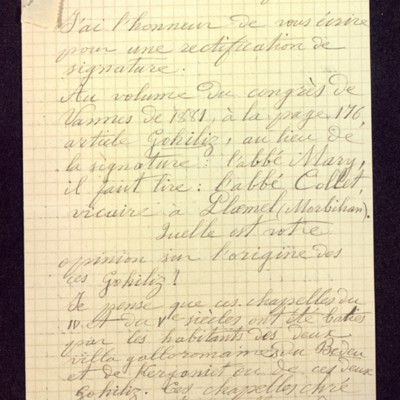 J'ai l'honneur de vous écrire
pour une rectification de
signature.
Au volume du congrès de
Vannes de 1881, à la page 176,
article Gohiliz, au lieu de
la signature : l'abbé Mary,
il faut lire : l'abbé Collet,
vicaire à Ploemel (Morbihan).
Quelle est votre
opinion sur l'origine des
ces Gohiliz ?
Je pense que ces chapelles du
IV et du V siècles ont été baties
par les habitants des deux
villa galloromaines du
et de ou de ces deux
Gohiliz. Ces chapelles